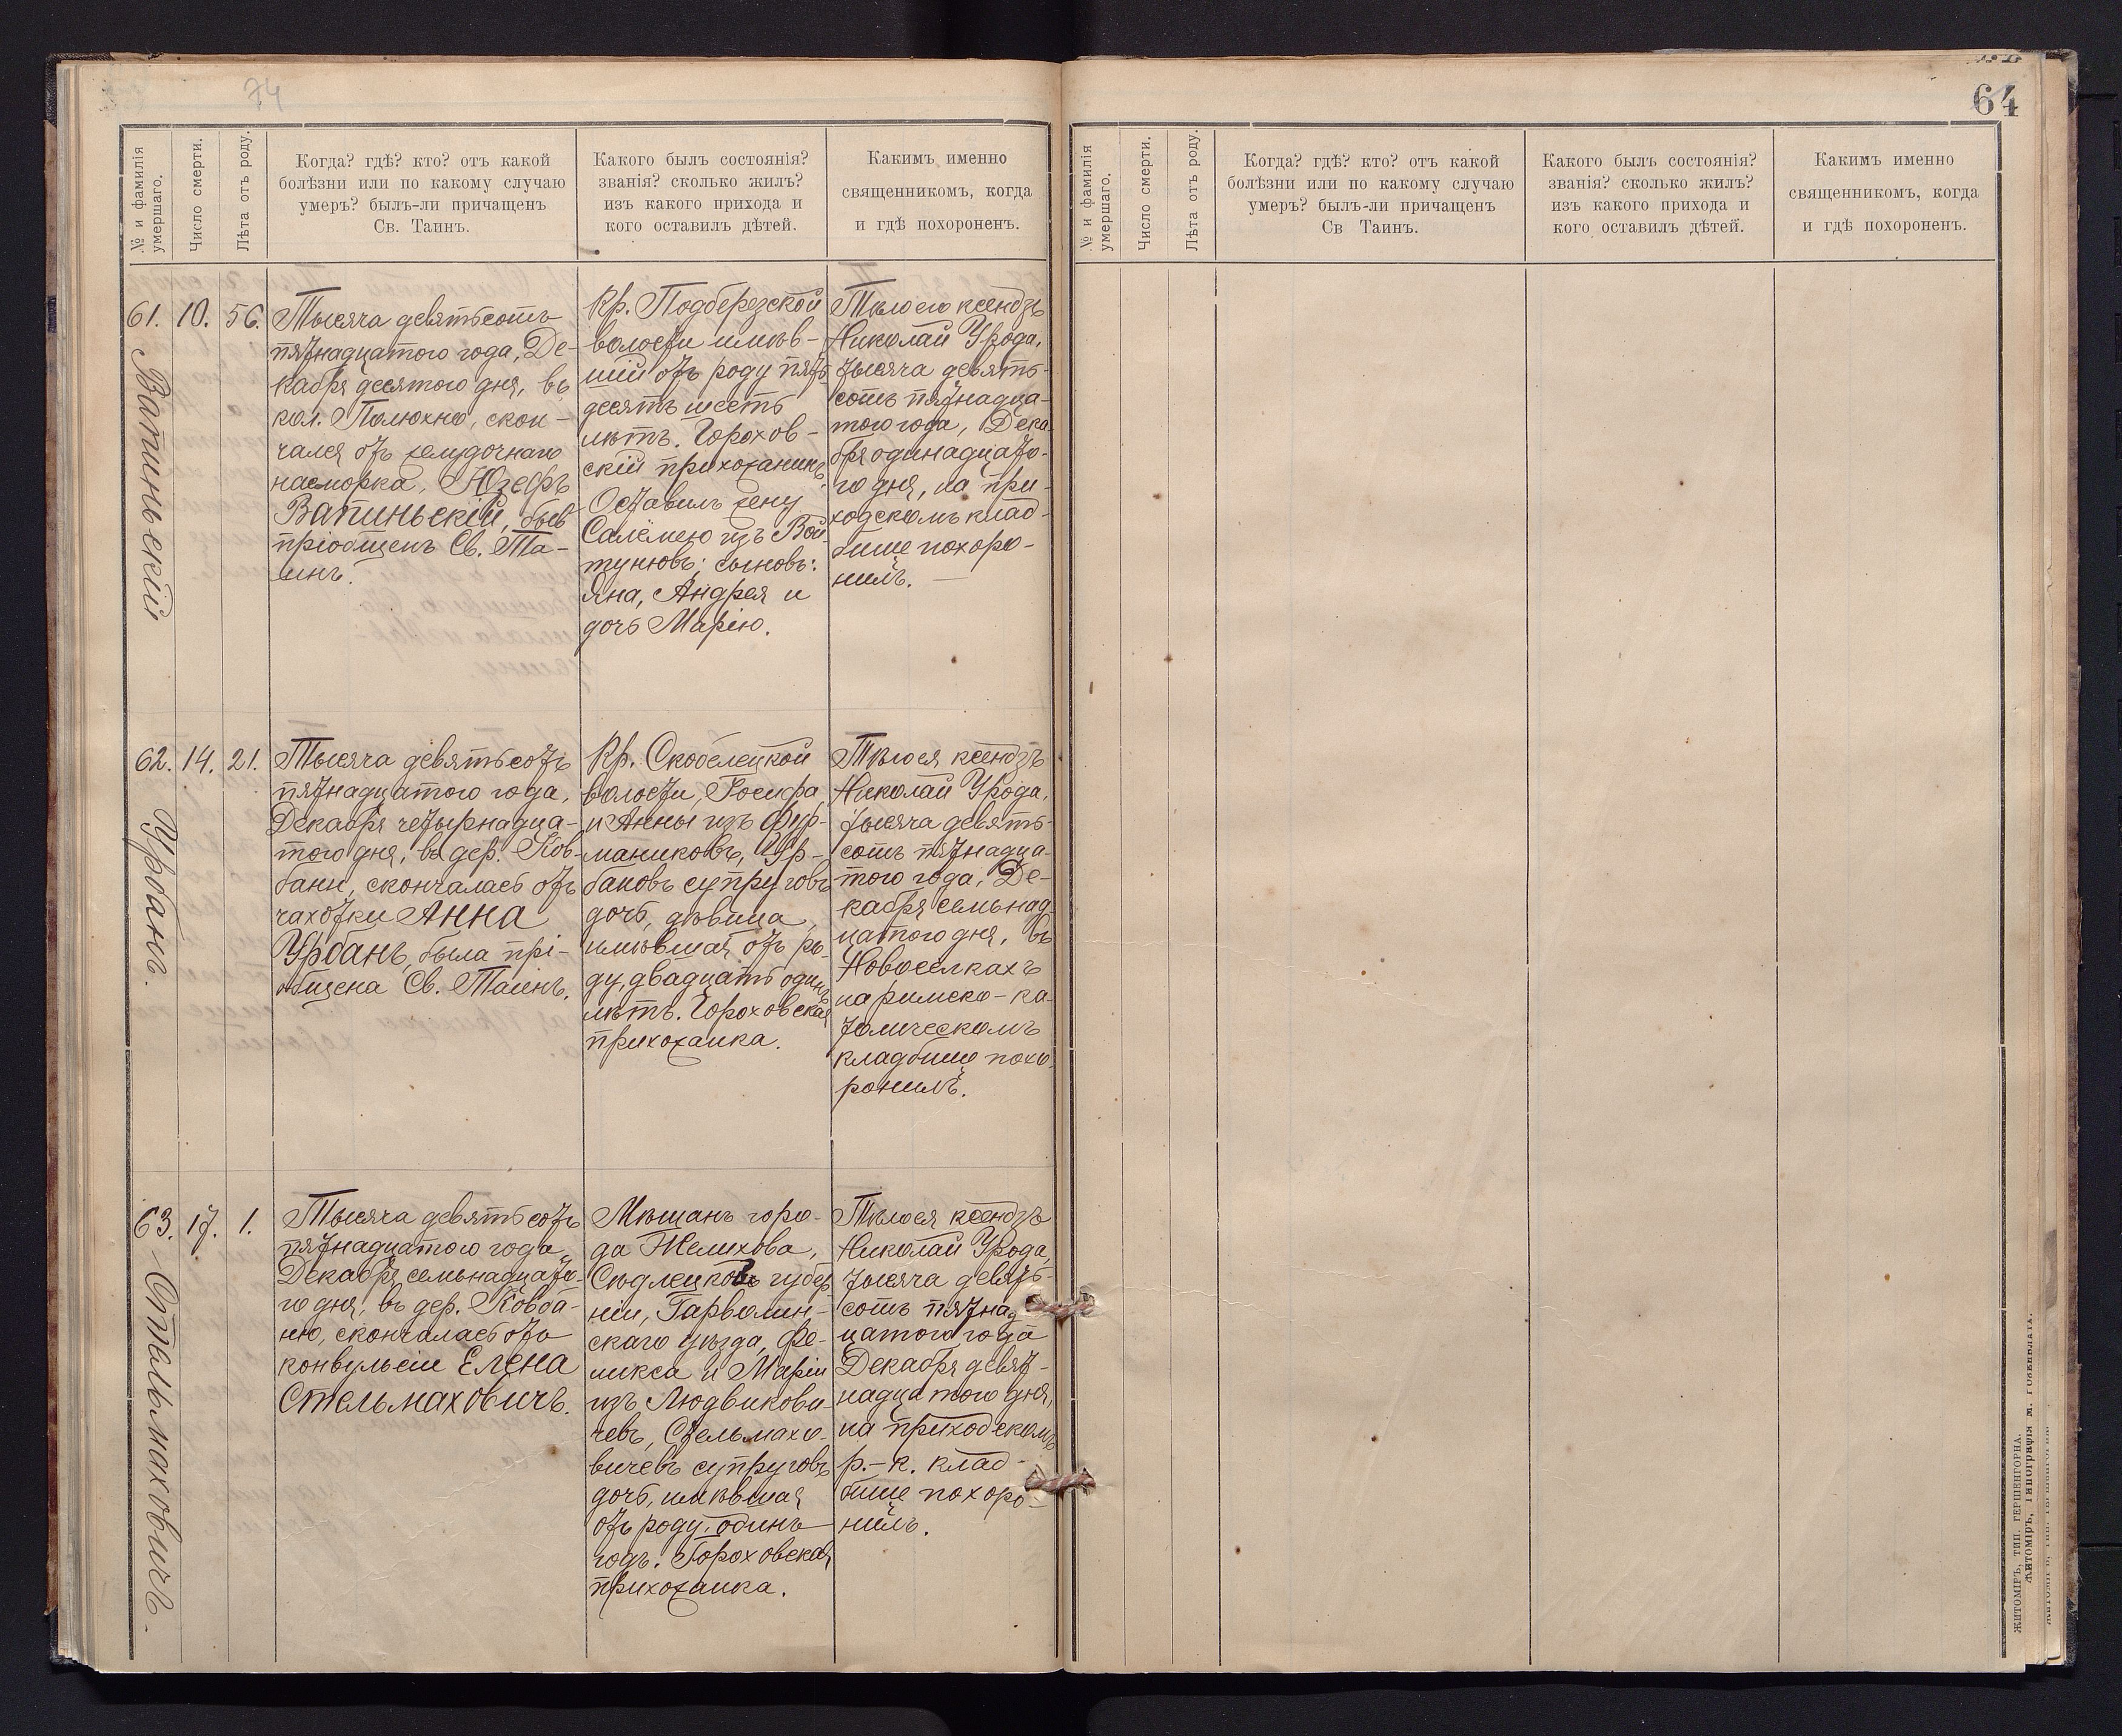 74
№ и фамилія
умершаго.
Число смерти.
Лѣта отъ роду.
Когда? гдѣ? кто? отъ какой
болѣзни или по какому случаю
умеръ? былъ-ли причащенъ
Св. Таинъ.
Какого былъ состоянія?
званія? сколько жилъ?
изъ какого прихода и
кого оставилъ дѣтей.
Какимъ именно
священникомъ, когда
и гдѣ похороненъ.
61.
Вапиньскій
10.
56.
Тысяча девятьсотъ
пятнадцатого года, Де-
кабря десятого дня, въ
кол. Полюхно, скон-
чался отъ желудочнаго
насморка, Юзефъ
Вапиньскій, былъ
пріобщенъ Св. Та-
инъ.
Кр. Подберезской
волости имѣв-
шій отъ роду пять
десятъ шесть
лѣтъ. Горохов-
скій прихожанинъ.
Оставилъ жену
Саломею изъ Вой-
тунювъ; сыновъ:
Яна, Андрея и
дочь Марію.
Тѣло его ксендзъ
Николай Урода,
тысяча девять-
сотъ пятнадца-
того года, Дека
бря одинадцато-
го дня, на при-
ходскомъ клад-
бище похоро-
нилъ.
62.
Урбанъ.
14.
21.
Тысяча девятьсотъ
пятнадцатого года,
Декабря четырнадца-
того дня, въ дер. Ков-
бани, скончалась отъ
чахотки Анна
Урбанъ, была прі-
общена Св. Таинъ.
Кр. Скобелецкой
волости, Іосифа
и Анны изъ Фур-
маниковъ, Ур-
бановъ супруговъ
дочь, дѣвица,
имѣвшая отъ ро-
ду, двадцать одинъ
лѣтъ. Гороховская
прихожанка.
Тѣло ея ксендзъ
Николай Урода,
тысяча девять-
сотъ пятнадца-
того года, Де-
кабря семьнад-
цатого дня, въ
Новоселкахъ
на римско-ка-
толическомъ
кладбище похо-
ронилъ.
63.
Стельмаховичъ.
17.
1.
Тысяча девятьсотъ
пятнадцатого года,
Декабря семьнадцато-
го дня, въ дер. Ковба-
ню, скончалась отъ
конвульсіи Елена
Стельмаховичъ.
Мѣщанъ горо-
да Желихова,
Сѣдлецков губер
ніи, Гарволин-
скаго уѣзда, Фе-
ликса и Маріи
изъ Людвикови-
чевъ, Стельмахо-
вичевъ супруговъ
дочь, имѣвшая
отъ роду, одинъ
годъ. Гороховская
прихожанка.
Тѣло ея ксендзъ
Николай Урода,
тысяча девять-
сотъ пятнад
цатого года
Декабря девят-
надцатого дня,
на приходскомъ
р.-к. клад-
бище похоро-
нилъ.
64
№ и фамилія
умершаго.
Число смерти.
Лѣта отъ роду.
Когда? гдѣ? кто? отъ какой
болѣзни или по какому случаю
умеръ? былъ-ли причащенъ
Св Таинъ.
Какого былъ состоянія?
званія? сколько жилъ?
изъ какого прихода и
кого оставилъ дѣтей.
Какимъ именно
священникомъ, когда
и гдѣ похороненъ.
ЖИТОМІРЪ, ТИП. ГЕРШЕНГОРНА.